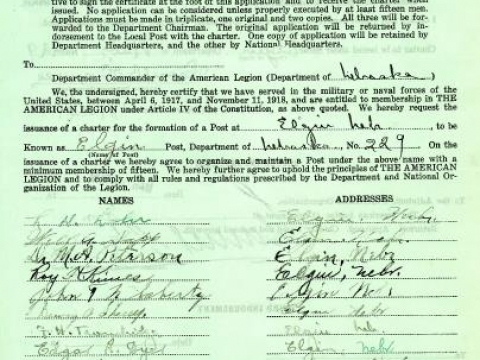 tive to sign the certificate at the foot of this application and to receive the charter when
issued. No application can be considered unless properly executed by at least fifteen men.
Applications must be made in triplicate, one original and two copies. All three will be for-
warded to the Department Chairman. The original application will be returned by in-
dorsement to the Local Post with the charter. One copy of application will be retained by
Department Headquarters, and the other by National Headquarters.
To
Department Commander of the American Legion (Department of Nebraska)
We, the undersigned, hereby certify that we have served in the military or naval forces of the
United States, between April 6, 1917, and November 11, 1918, and are entitled to membership in THE
AMERICAN LEGION under Article IV of the Constitution, as above quoted. We hereby request the
issuance of a charter for the formation of a Post at Elgin Nebr, to be
Known as Elgin Post, Department of Nebraska, No. 229
(Name of Post)
issuance of the charter we hereby agree to organize and maintain a Post under the above name with a
minimum membership of fifteen. We hereby further agree to uphold the principles of THE AMERICAN
LEGION and to comply with all rules and regulations prescribed by the Department and National Or-
ganization of the Legion.
NAMES ADDRESSES
Elgin, Nebr.
Elgin
Dr. M.H. Peterson Elgin, Nebr
Roy Kimes Elgin, Nebr.
John Elgin
Elgin Nebr
F. H. Elgin Neb.
Edgar Elgin, Nebr.